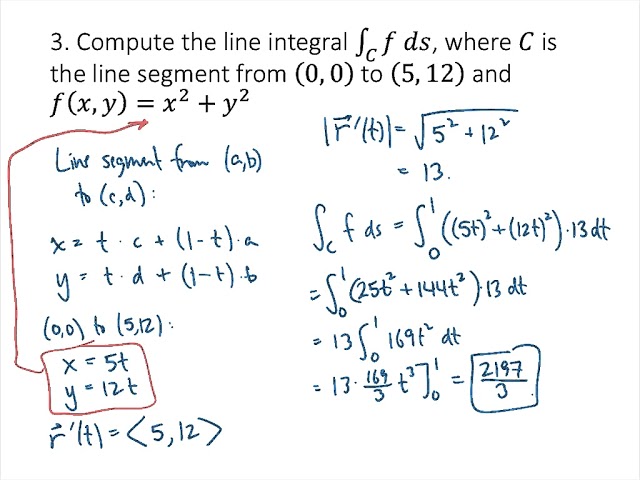 3. Compute the line integral ∫_C f ds, where C is
the line segment from (0, 0) to (5, 12) and
f(x, y) = x² + y²
Line segment from (a,b)
to (c,d):
x = t · c + (1-t)·a
y = t · d + (1-t)·b
(0,0) to (5,12):
x = 5t
y = 12t
r⃗'(t) = <5, 12>
|r⃗'(t)| = √(5² + 12²)
= 13.
∫_C f ds = ∫_0^1 ((5t)² + (12t)²)·13 dt
= ∫_0^1 (25t² + 144t²)·13 dt
= 13 ∫_0^1 169t² dt
= 13 · 169/3 t³]_0^1 = 2197/3